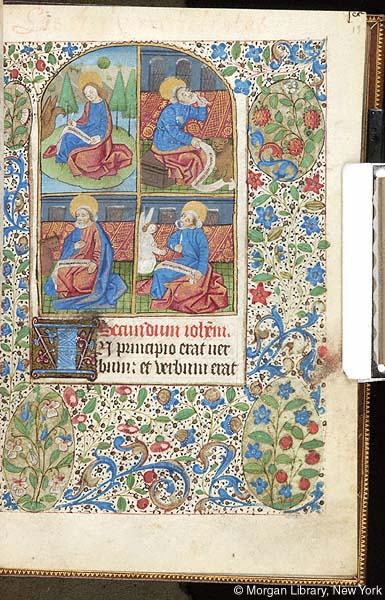 Secundum iohem.
IN principio erat ver
bum: et verbum erat
© Morgan Library, New York